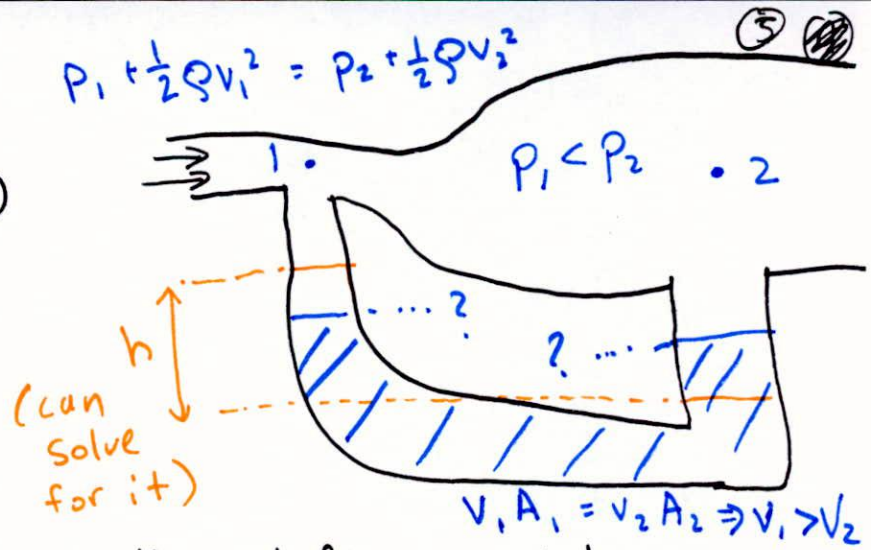 5
P₁ + ½ρv₁² = P₂ + ½ρv₂²
1
P₁ < P₂
2
?
?
h
(can
solve
for it)
V₁A₁ = V₂A₂ ⇒ V₁ > V₂